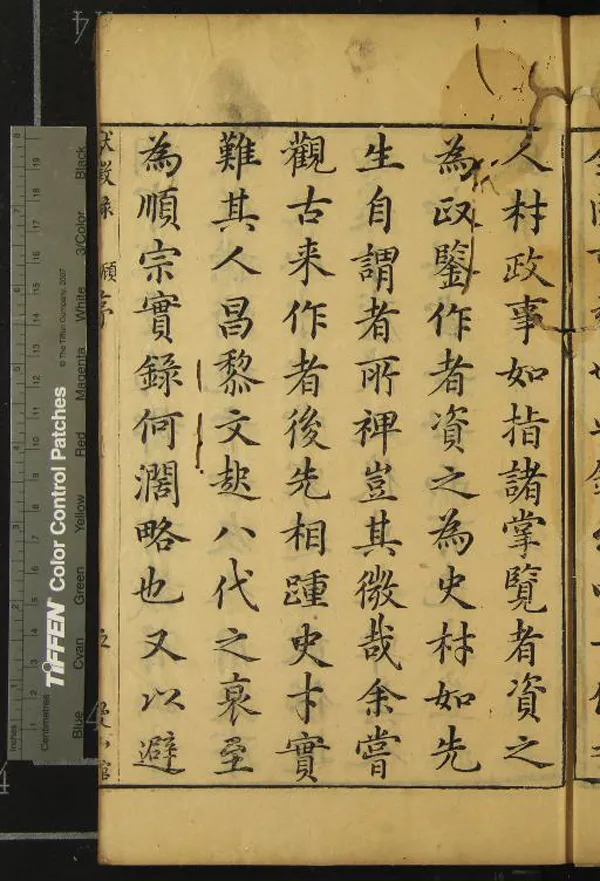 人材政事如指諸掌覽者資之
為政鑒作者資之為史材如先
生自謂者所裨豈其微哉余嘗
觀古来作者後先相踵史才實
難其人昌黎文起八代之衰至
為順宗實錄何濶略也又以避
獻徵錄 顧序
Inches
Centimetres
TIFFEN Color Control Patches
© The Tiffen Company, 2007
Blue Cyan Green Yellow Red Magenta White 3/Color Black